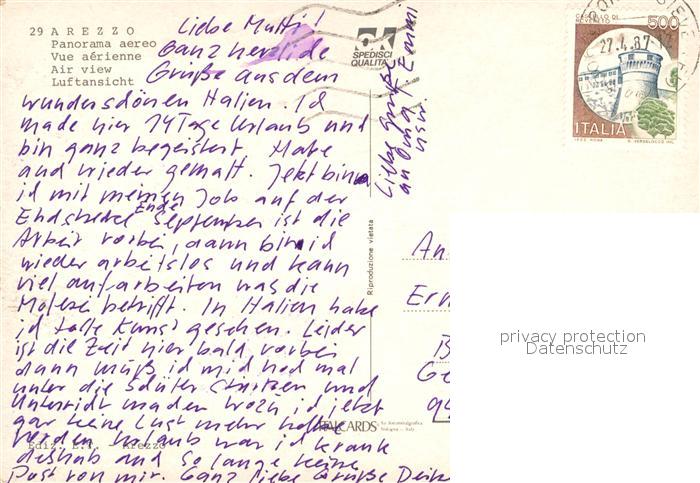 29 AREZZO
Panorama aereo
Vue aérienne
Air view
Luftansicht
Liebe Mutti!
Ganz herzliche
Grüße aus dem
wunderschönen Italien. Ich
mache hier 14 Tage Urlaub und
bin ganz begeistert. Habe
auch wieder gemalt. Jetzt bin
ich mit meinem Job auf der
Endstrecke Ende September ist die
Arbeit vorbei, dann bin ich
wieder arbeitslos und kann
viel aufarbeiten was die
Malerei betrifft. In Italien habe
ich tolle Kunst gesehen. Leider
ist die Zeit hier bald vorbei
dann muß ich mich noch mal
unter die Schüler stürzen und
Unterricht machen wozu ich jetzt
gar keine Lust mehr habe
Vor dem Urlaub war ich krank
deshalb auch so lange keine
Post von mir. Ganz liebe Grüße Dein
Liebe Grüße
an Oma Emmi
usw.
SPEDISCI
QUALITÀ
CASTELLO DI
500
27.4.87
ITALIA
Riproduzione vietata
An
Ern
B
Ge
ITALCARDS
Ediz. E.T. - Arezzo
privacy protection
Datenschutz